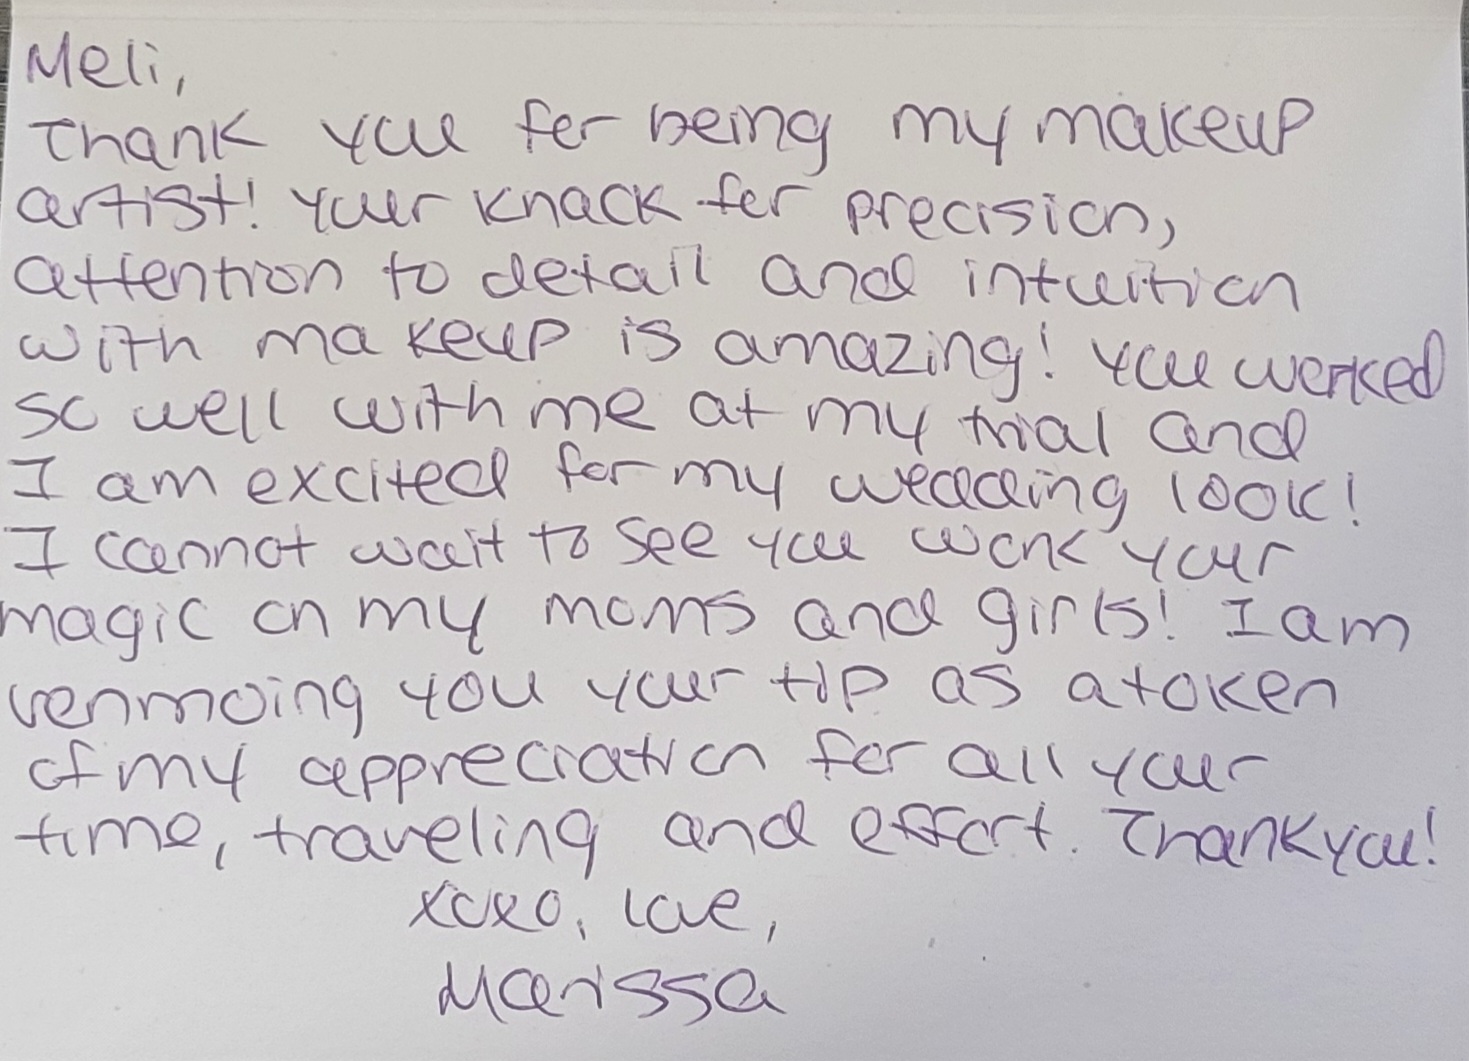 Meli,
Thank you for being my makeup
artist! Your knack for precision,
attention to detail and intuition
with makeup is amazing! You worked
so well with me at my trial and
I am excited for my wedding look!
I cannot wait to see you work your
magic on my moms and girls! I am
venmoing you your tip as a token
of my appreciation for all your
time, traveling and effort. Thank you!
xoxo, love,
Marissa